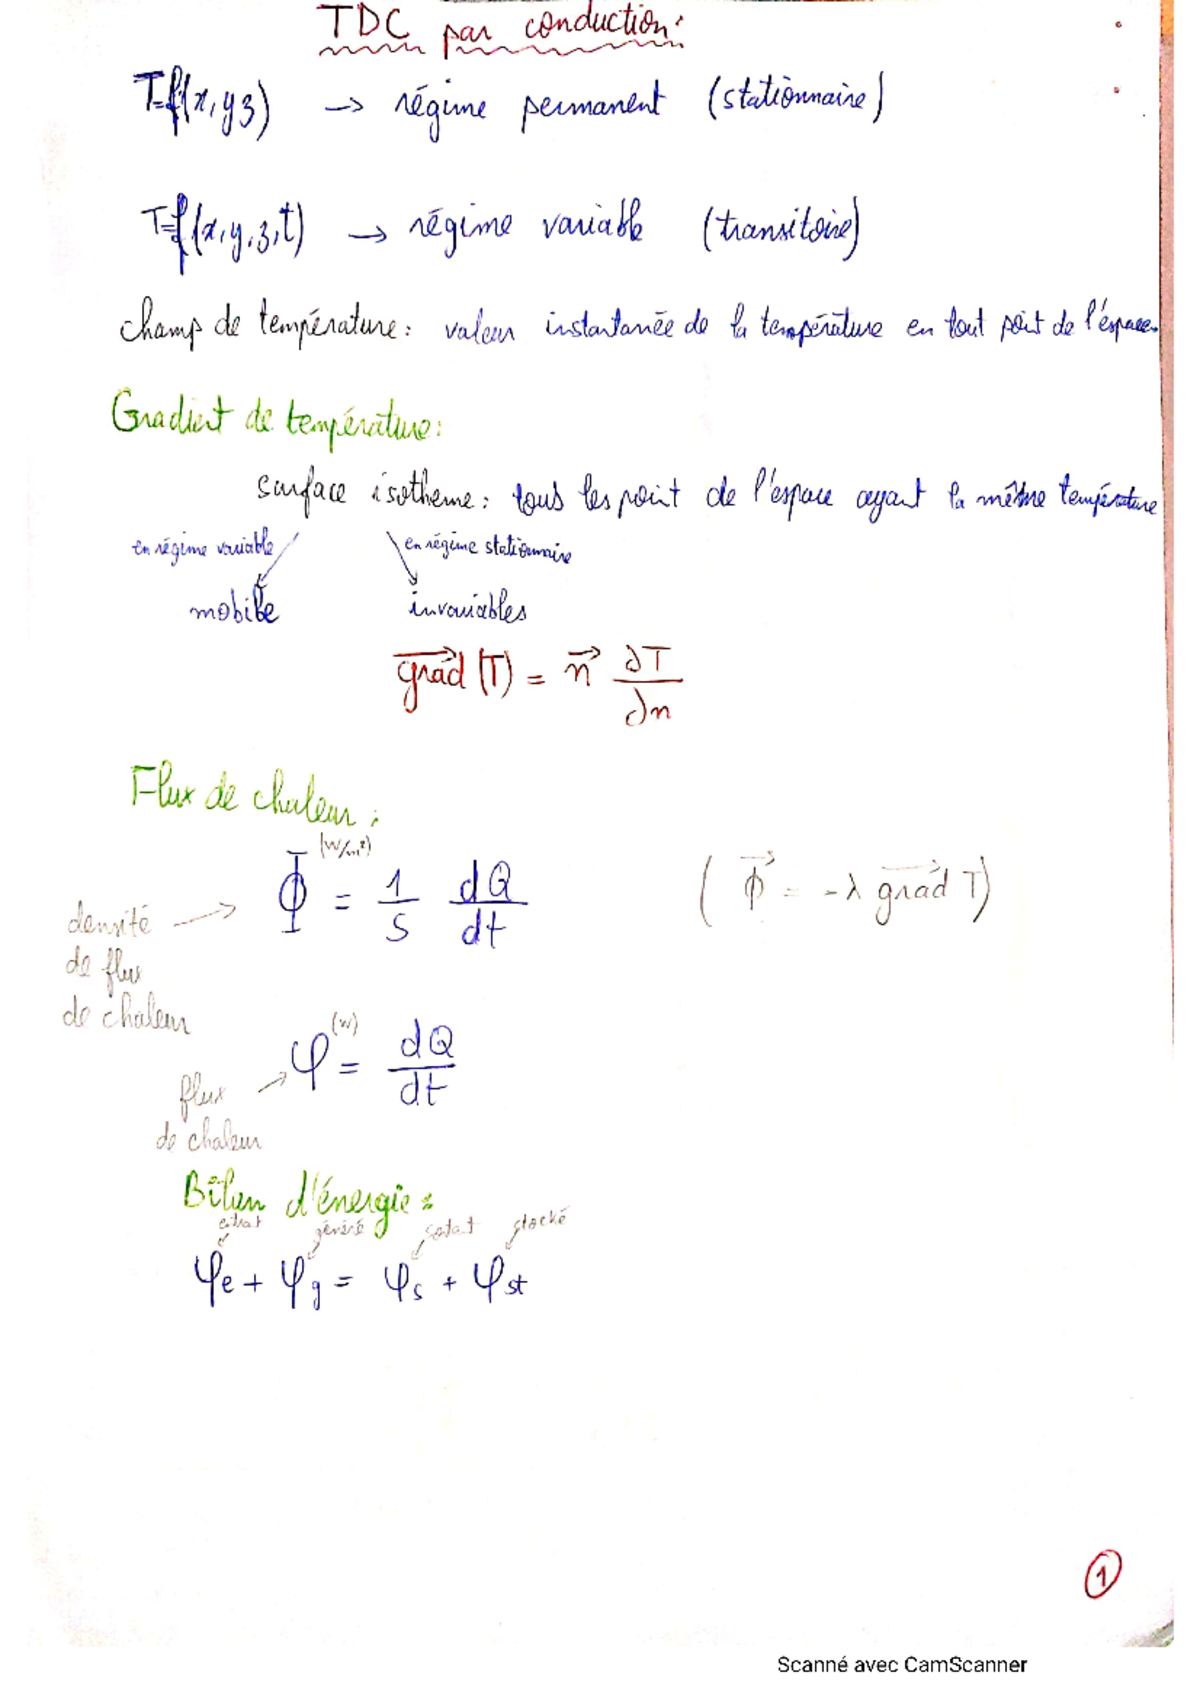 TDC par conduction:
T=f(x,y,z) → régime permanent (stationnaire)
T=f(x,y,z,t) → régime variable (transitoire)
champ de température: valeur instantanée de la température en tout point de l'espace.
Gradient de température:
surface isotheme: tous les point de l'espace ayant la même température
en régime variable en régime stationnaire
mobile invariables
grad (T) = n ∂T/∂n
Flux de chaleur:
(W/m²)
densité de flux de chaleur → Φ = 1/S dQ/dt (Φ = -λ grad T)
(W)
flux de chaleur → φ = dQ/dt
Bilan d'énergie:
entrat généré sotat stocké
φe + φg = φs + φst
1
Scanné avec CamScanner